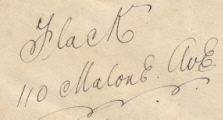 Flack
110 Malone Ave